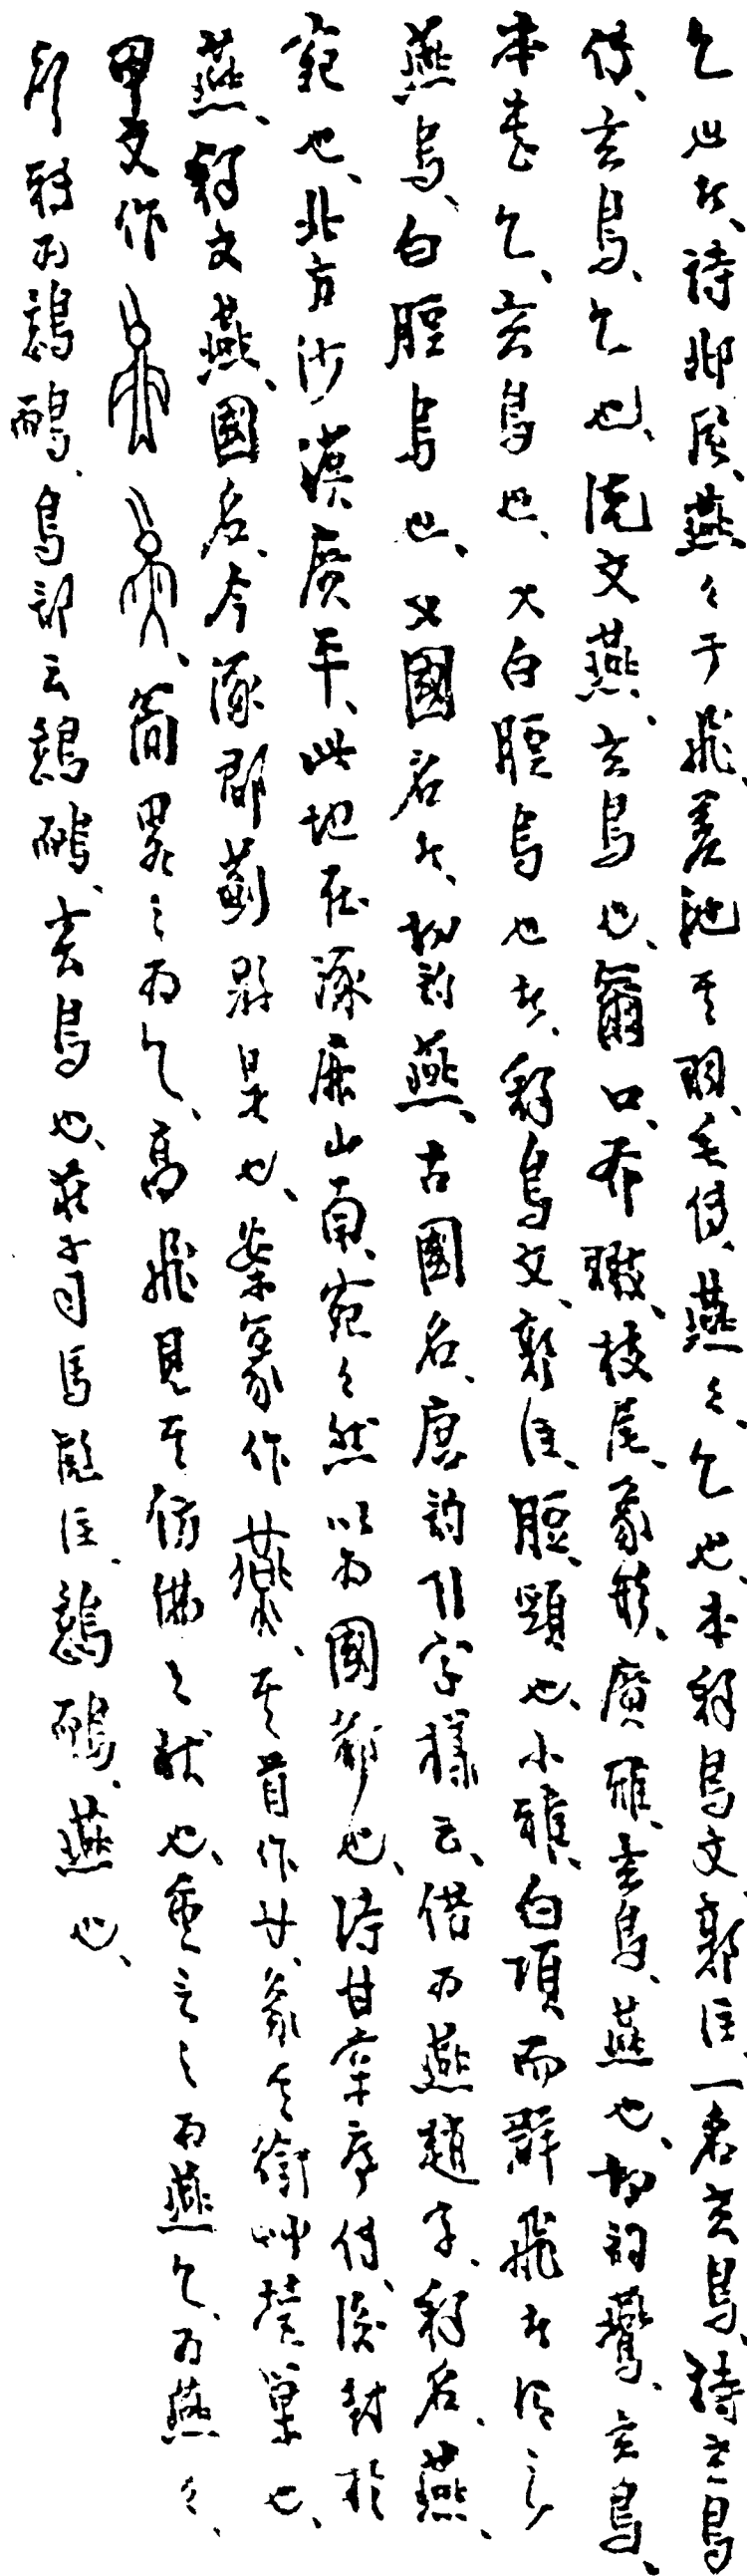 乞也者、詩邶風、燕〻于飛、差池其羽、毛傳、燕〻、乞也、本釋鳥文、郭注、一名玄鳥、詩玄鳥
傳、玄鳥、乞也、說文燕、玄鳥也、籋口、布翄、枝尾、象形、廣雅、玄鳥、燕也、切韵鷰、玄鳥、
本書乞、玄鳥也、又白脰烏也者、釋鳥文、郭注、脰、頸也、小雅、白項而群飛者謂之
燕烏、白脰烏也、又國名者、切韵燕、古國名、唐韵引字樣云、借为燕趙字、釋名、燕、
宛也、北方沙漠廣平、此地在涿鹿山南、宛〻然以为國都也、詩甘棠序傳、後封於
燕、釋文燕、國名、今涿郡薊縣是也、案篆作燕、其首作廿、象其銜艸營巢也、
甲文作、簡畧之为乞、高飛見其仿佛之狀也、重言之为燕乞、为燕〻、
聲轉为鷾鴯、鳥部云鷾鴯、玄鳥也、莊子司馬彪注、鷾鴯、燕也、